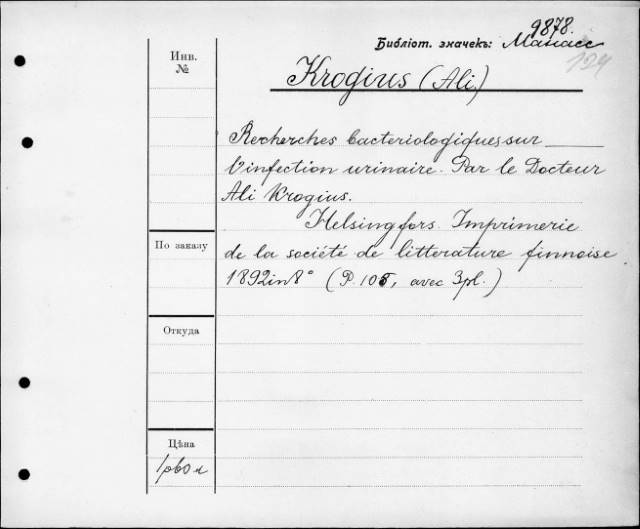 9878.
Библіот. значекъ: Манасс
124
Инв.
№
Krogius (Ali.)
Recherches bacteriologiques sur
l'infection urinaire. Par le Docteur
Ali Krogius.
Helsingfors. Imprimerie
По заказу
de la société de litterature finnoise
1892 in 8° (P. 105, avec 3 pl.)
Откуда
Цѣна